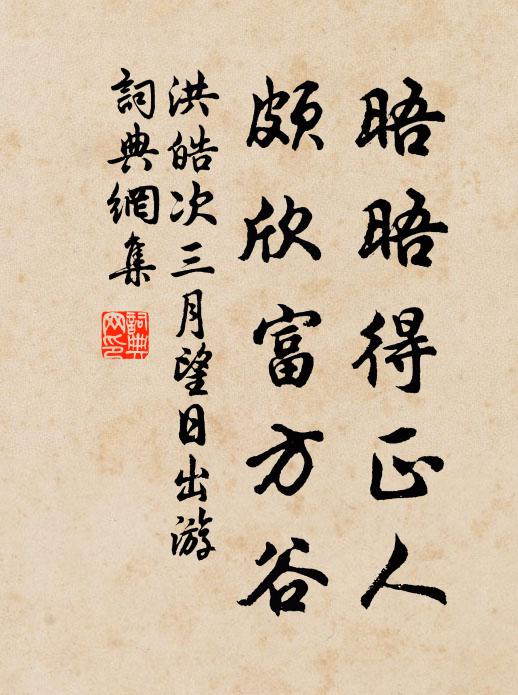 晤晤得正人
頗欣富方谷
洪皓次三月望日出游
詞典網集
詞典網印